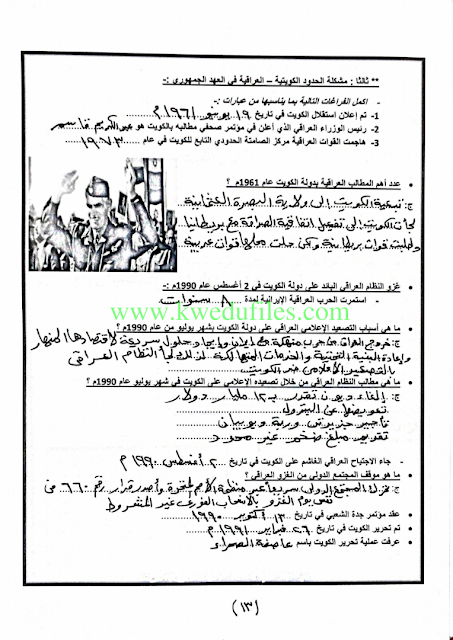 ** ثالثا : مشكلة الحدود الكويتية – العراقية في العهد الجمهوري :-
- اكمل الفراغات التالية بما يناسبها من عبارات :-
1- تم إعلان استقلال الكويت في تاريخ ١٩ يونيو ١٩٦١م
2- رئيس الوزراء العراقي الذي أعلن في مؤتمر صحفي مطالبه بالكويت هو عبدالكريم قاسم
3- هاجمت القوات العراقية مركز الصامتة الحدودي التابع للكويت في عام ١٩٧٣
• عدد أهم المطالب العراقية بدولة الكويت عام 1961م ؟
ج: تبعية الكويت إلى ولاية البصرة العثمانية
لجأت الكويت إلى تفعيل اتفاقية الصداقة مع بريطانيا
وطلبت قوات بريطانية ولكن حلت محلها قوات عربية
غزو النظام العراقي البائد على دولة الكويت في 2 أغسطس عام 1990م :-
- استمرت الحرب العراقية الإيرانية لمدة ٨ سنوات
www.kwedufiles.com
• ما هي أسباب التصعيد الإعلامي العراقي على دولة الكويت بشهر يوليو من عام 1990م ؟
ج: خروج العراق من حرب منهكة مع إيران وإيجاد حلول سريعة لاقتصادها المنهار
وإعادة البنية التحتية والخدمات المتهالكة لذلك بدأ النظام العراقي
بالتصعيد الإعلامي ضد الكويت
• ما هي مطالب النظام العراقي من خلال تصعيده الإعلامي على الكويت في شهر يوليو عام 1990م ؟
ج: إلغاء ديون تقدر بـ ١٢ مليار دولار
تعويضها عن البترول
تأجير جزيرتين وربة وبوبيان
تقديم مبلغ ضخم غير محدد
- جاء الاجتياح العراقي الغاشم على الكويت في تاريخ ٢ أغسطس ١٩٩٠م
• ما هو موقف المجتمع الدولي من الغزو العراقي ؟
ج: تحرك المجتمع الدولي سريعا عبر منظمة الأمم المتحدة وأصدر قرار رقم ٦٦٠ في
نفس يوم الغزو بالانسحاب الفوري غير المشروط
• عقد مؤتمر جدة الشعبي في تاريخ ١٣ أكتوبر ١٩٩٠
• تم تحرير الكويت في تاريخ ٢٦ فبراير ١٩٩١م
• عرفت عملية تحرير الكويت باسم عاصفة الصحراء
(١٣)